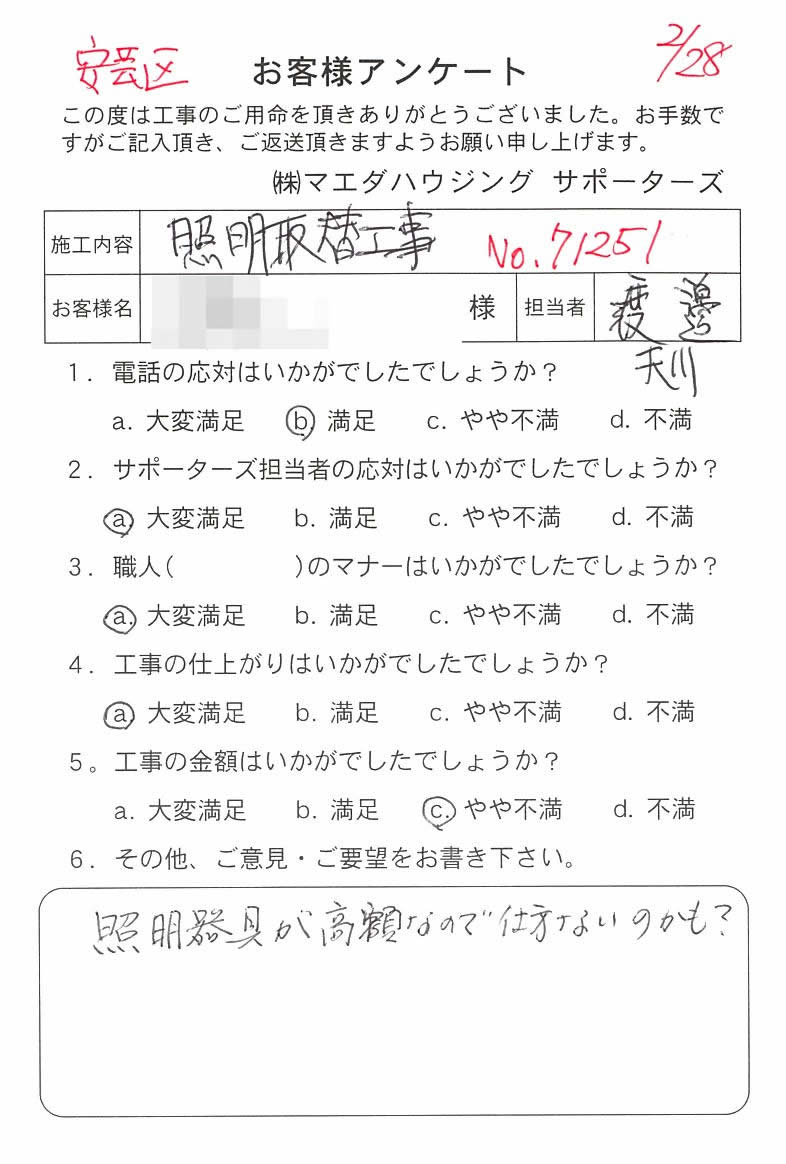 安芸区 お客様アンケート 2/28
この度は工事のご用命を頂きありがとうございました。お手数で
すがご記入頂き、ご返送頂きますようお願い申し上げます。
㈱マエダハウジング サポーターズ
施工内容 照明取替工事 No.71251
お客様名 様 担当者 渡邊
天川
1. 電話の応対はいかがでしたでしょうか?
a. 大変満足 b. 満足 c. やや不満 d. 不満
2. サポーターズ担当者の応対はいかがでしたでしょうか?
a. 大変満足 b. 満足 c. やや不満 d. 不満
3. 職人( )のマナーはいかがでしたでしょうか?
a. 大変満足 b. 満足 c. やや不満 d. 不満
4. 工事の仕上がりはいかがでしたでしょうか?
a. 大変満足 b. 満足 c. やや不満 d. 不満
5。工事の金額はいかがでしたでしょうか?
a. 大変満足 b. 満足 c. やや不満 d. 不満
6. その他、ご意見・ご要望をお書き下さい。
照明器具が高額なので仕方ないのかも?